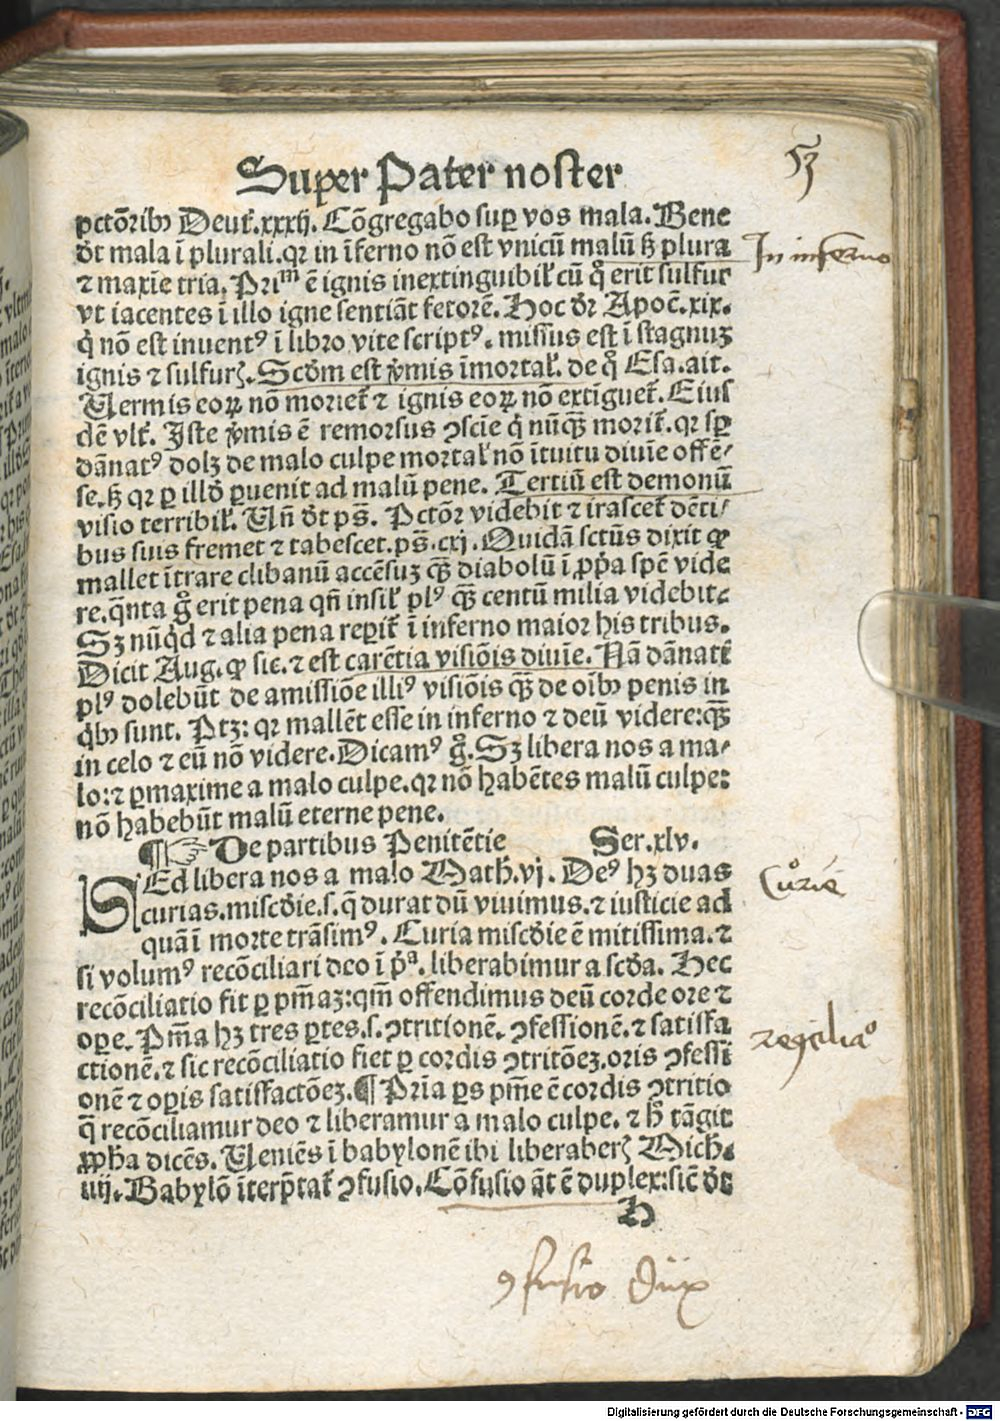 53
Super Pater noster
pctōribꝫ Deut̄.xxxij. Cōgregabo suꝑ vos mala. Bene
d̄t mala ī plurali.qꝛ in īferno nō est vnicū malū sꝫ plura
In inferno
⁊ maxīe tria. Priᵐ ē ignis inextinguibil̄ cū q̊ erit sulfur
vt iacentes ī illo igne sentiāt fetorē. Hoc dr̄ Apoc̄.xix.
q̇ nō est inuentꝰ ī libro vite scriptꝰ. missus est ī stagnuꝫ
ignis ⁊ sulfurꝭ. Scd̄m est v̄mis īmortal̄. de q̊ Esa.ait.
Uermis eoꝝ nō moriet̄ ⁊ ignis eoꝝ nō extīguet̄. Eius
dē vlt̄. Iste v̄mis ē remorsus ꝯscīe q̇ nūqꝫ morit̄. qꝛ sꝑ
dānatꝰ dolꝫ de malo culpe mortal̄ nō ītuitu diuīe offē⸗
se. sꝫ qꝛ ꝑ illd̄ ꝑuenit ad malū pene. Tertiū est demonū
visio terribil̄. Un̄ d̄t ps̄. Pctōr videbit ⁊ irascet̄ dēti⸗
bus suis fremet ⁊ tabescet.ps̄.cxj. Quidā sctūs dixit ꝙ
mallet ītrare clibanū accēsuꝫ qꝫ̄ diabolū ī ꝓp̄a spē vide
re.q̄nta g̊ erit pena qn̄ insil̄ plꝰ qꝫ̄ centū milia videbitꝭ
Sꝫ nūq̇d ⁊ alia pena reꝑit̄ ī inferno maior his tribus.
Dicit Aug. ꝙ sic. ⁊ est carētia visiōis diuīe. Nā dānati
plꝰ dolebūt de amissiōe illiꝰ visiōis qꝫ̄ de oībꝫ penis in
q̇bꝫ sunt. Ptꝫ: qꝛ mallēt esse in inferno ⁊ deū videre: qꝫ̄
in celo ⁊ eū nō videre. Dicamꝰ g̊. Sꝫ libera nos a ma⸗
lo: ⁊ ꝑmaxime a malo culpe. qꝛ nō habētes malū culpe:
nō habebūt malū eterne pene.
¶ ☞ De partibus Penitētie Ser.xlv.
SEd libera nos a malo Math̄.vj. Deꝰ hꝫ duas
Curie
curias.misc̄die.s.q̄ durat dū viuimus. ⁊ iusticie ad
quā ī morte trāsimꝰ. Curia misc̄die ē mitissima. ⁊
si volumꝰ recōciliari deo ī p̄ᵃ. liberabimur a scd̄a. Hec
recōciliatio fit ꝑ pm̄aꝫ: qm̄ offendimus deū corde ore ⁊
oꝑe. Pm̄a hꝫ tres ꝑtes.s. ꝯtritionē. ꝯfessionē. ⁊ satisfa
ctionē. ⁊ sic recōciliatio fiet ꝑ cordis ꝯtritōeꝫ. oris ꝯfessi
onē ⁊ oꝑis satisfactōeꝫ. ¶ Prīa ꝑs pm̄e ē cordis ꝯtritio
q̄ recōciliamur deo ⁊ liberamur a malo culpe. ⁊ h̄ tāgit
ꝓph̄a dicēs. Ueniēs ī babylonē ibi liberaberꝭ Mich̄.
iiij. Babylō īterp̄tat̄ ꝯfusio. Cōfusio āt ē duplex: sic̄ d̄t
H
ꝯfusio dūx